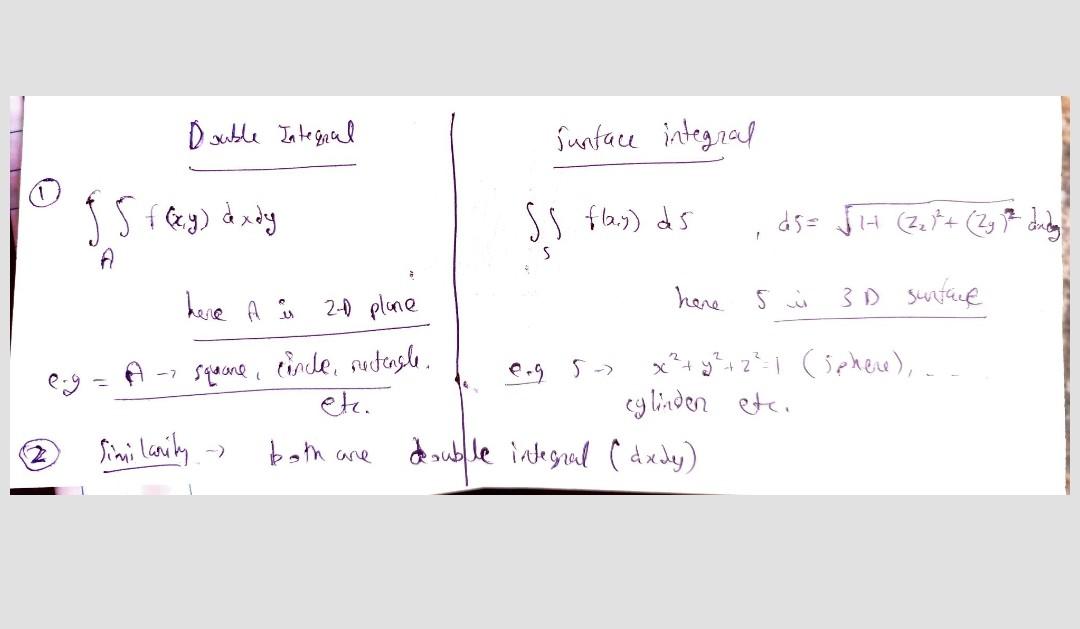 Double Integral
Surface integral
① ∫∫ f(x,y) dxdy
A
∫∫ f(x,y) ds , ds = √1+ (Zx)²+ (Zy)² dxdy
S
here A is 2-D plane
here S is 3D surface
e.g = A → square, circle, rectangle.
etc.
e.g S → x²+y²+z²=1 (sphere), - -
cylinder etc.
② Similarity → both are double integral (dxdy)